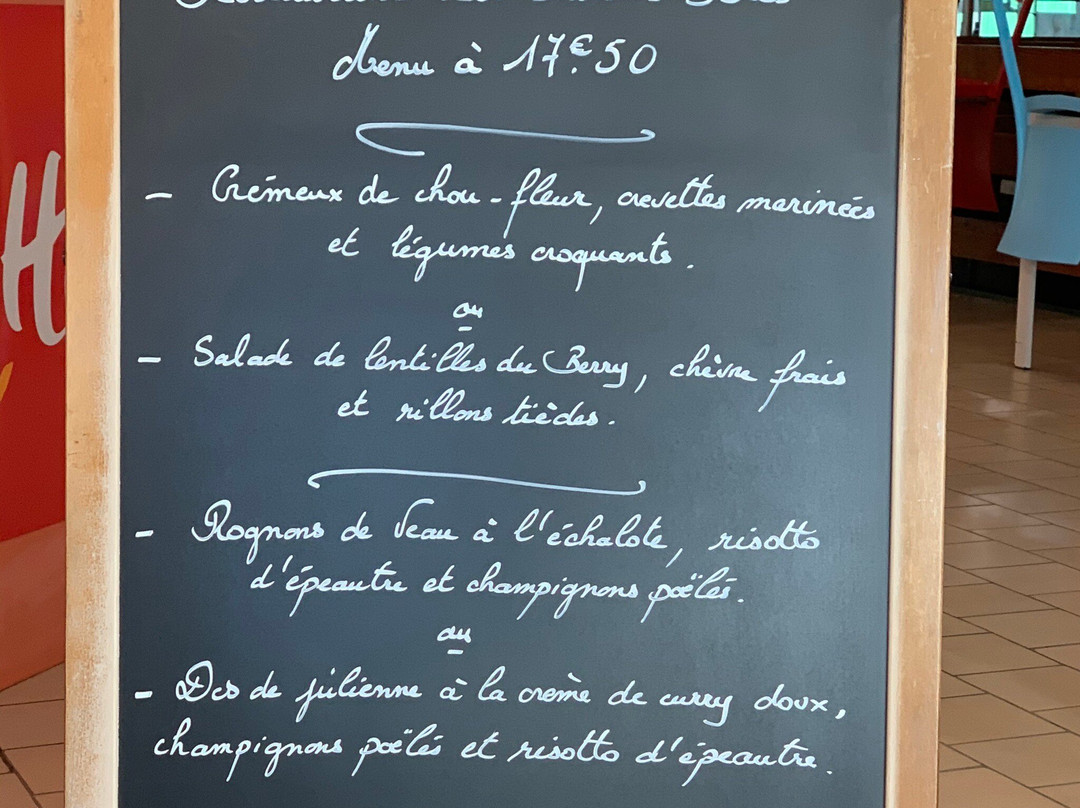 Menu à 17€50
- Crémeux de chou-fleur, crevettes marinées
et légumes croquants.
ou
- Salade de lentilles du Berry, chèvre frais
et rillons tièdes.
- Rognons de Veau à l'échalote, risotto
d'épeautre et champignons poëlés.
ou
- Dos de julienne à la crème de curry doux,
champignons poëlés et risotto d'épeautre.
H